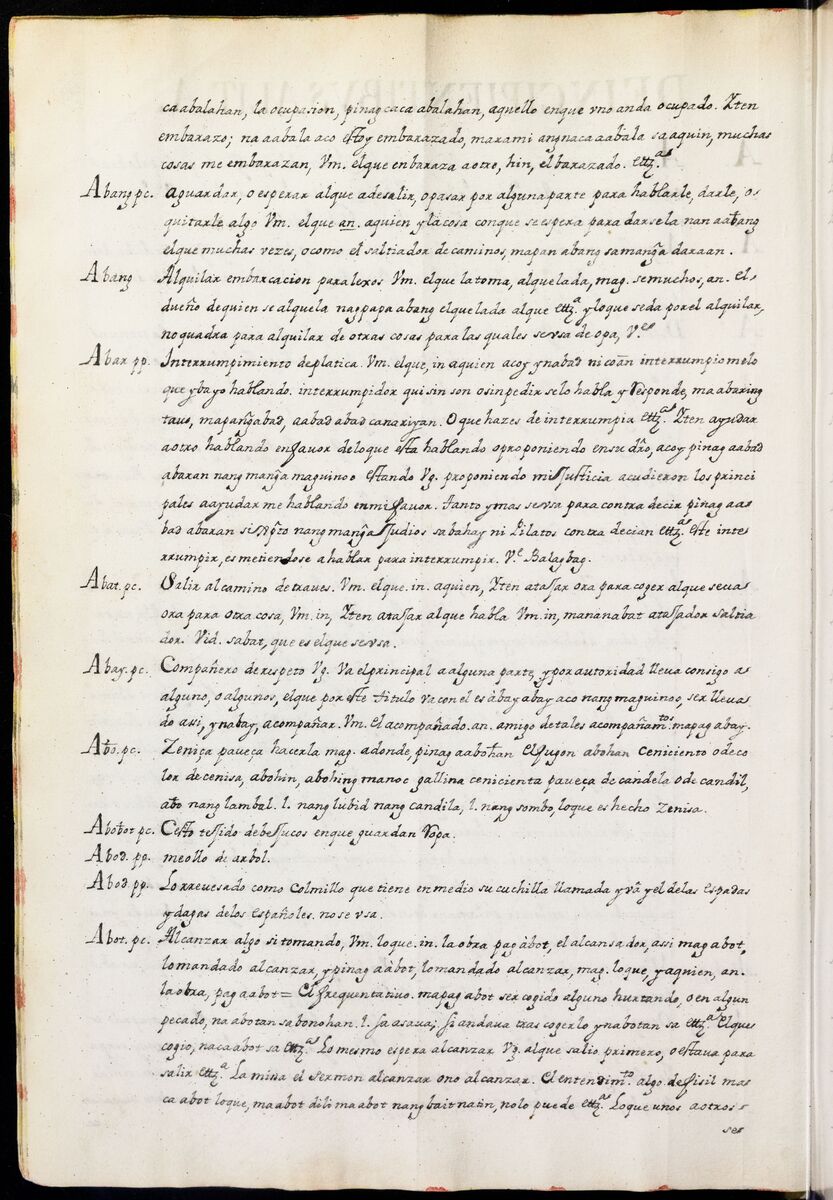 caabalahan, la ocupasion, pinagcaca abalahan, aquello enque vno anda ocupado. Yten
embarazo; na aabala aco estoy embarazado, marami angnaca aabala sa aquin, muchas
cosas me embarazan, Vm. elque enbaraza aotro, hin, el barazado. ettz.ª
Abang pc. aguardar, o esperar alque adesalir, opasar por alguna parte para hablarle, darle, o
quitarle algo Vm. elque an. aquien y la cosa conque se espera para darsela nan aabang
elque muchas vezes, ocomo el saltiador de caminos, mapan abang sa manga daraan.
Abang Alquilar embarcacion para lexos Vm. elque la toma, alquelada, mag. se muchos, an. el
dueño dequien se alquela nagpapa abang elquelada alque ettz.ª y loque seda por el alquilar,
no quadra para alquilar de otras cosas para las quales sevsa de opa, V.
Abar pp. Interrumpimiento deplatica. Vm. elque, in aquien acoy ynabad ni coan interrumpiomelo
que yba yo hablando. interrumpidor qui sin son osinpedir selo habla y responde, ma abaring
tauo, mapangabad, aabad abad ca nariyan. O que hazes de interrumpir ettz.ª Yten ayudar
aotro hablando enfavor deloque esta hablando oproponiendo ensu dro, acoy pinag aabad
abaran nang manga maguinoo estando Vg. proponiendo mi justicia acudieron los princi
pales aayudar me hablando enmi favor. tanto y mas sevsa para contra decir pinag aa
bad abaran si xpto nang manga Judios sa bahay ni Pilatos contra decian ettz.ª este inte
rrumpir, es metiendose a hablar para interrumpir. V.e Balagbag.
Abat. pc. Salir al camino de traves. Vm. elque. in. aquien, Yten atajar ora para coger alque seva
ora para otra cosa, Vm. in, Yten atajar alque habla Vm. in, mananabat atajador saltia
dor. Vid. sabat, que es elque sevsa.
Abay. pc. Compañero de respeto Vg. Va el principal a alguna parte, y por autoridad lleva consigo a
alguno, o algunos, elque por este titulo va con el es àbay abay aco nang maguinoo, ser lleva
do assi, ynabay, acompañar. Vm. El acompañado. an. amigo detales acompañam.tos mapag abay.
Abo. pc. Zeniça paveça hacerla mag. adonde, pinag aabohan El fugon abohan Ceniciento o de co
lor de cenisa, abohin, abohing manoc gallina cenicienta paveça de candela o de candil,
abo nang lambal. l. nang lubid nang candila, l. nang sombo, loque es hecho zenisa.
Abobot pc. Cesto tesido debejucos enque guardan ropa.
Abod. pp. meollo de arbol.
Abod. pp. Lo rrevesado como Colmillo que tiene en medio su cuchilla llamada yva y el delas espadas
y dagas delos españoles. no se vsa.
Abot. pc. Alcanzar algo si tomando, Vm. loque. in. la obra pag àbot, el alcansador, assi mag abot,
lo mandado alcanzar, y pinag aàbot, lo mandado alcanzar, mag. loque, y aquien, an.
la obra, pag aabot = El frequentativo. mapag abot ser cogido alguno hurtando, o en algun
pecado, na abotan sa bonohan. l. sa asaua; si andava tras cogerlo y nabotan sa ettz.ª El que
cogio, naca abot sa ettz.ª Lo mesmo espera alcanzar Vg. alque salio primero, o estava para
salir ettz.ª La mina el sermon alcanzar o no alcanzar. El entendim.to algo defisil ma
ca abot loque, ma abot dili ma abot nang bait natin, nolo puede ettz.ª Loque unos aotros
se